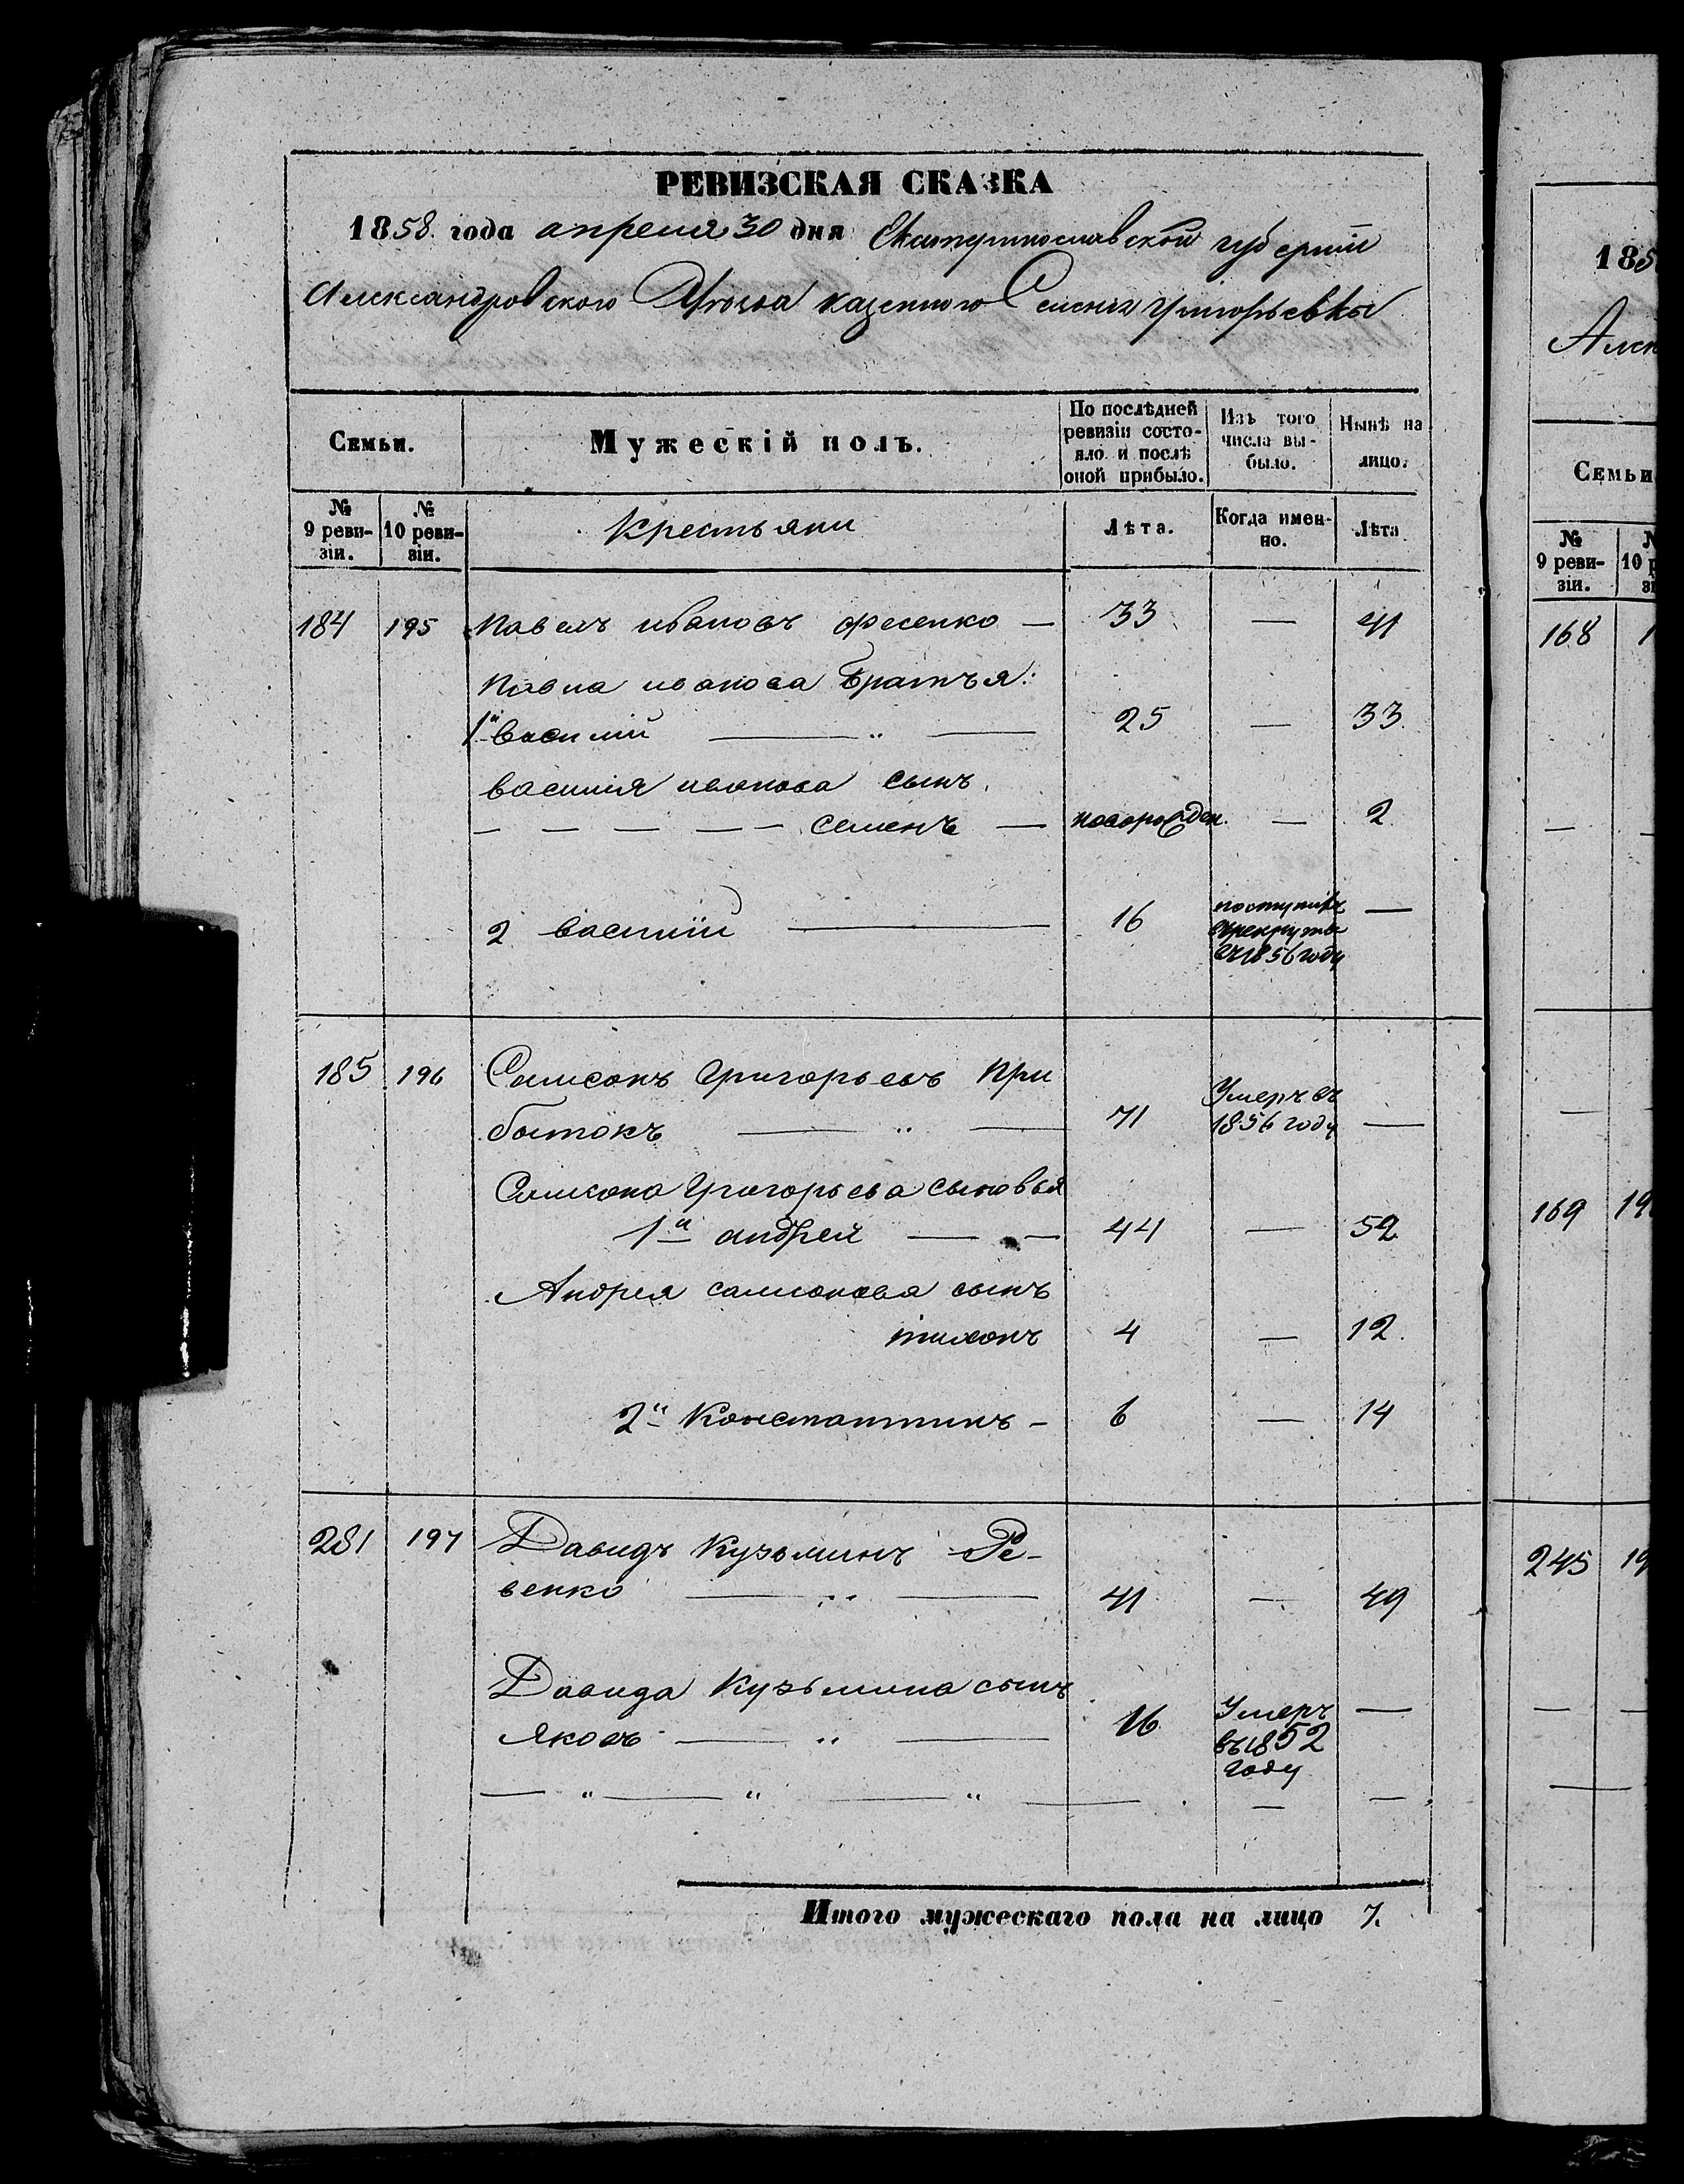 РЕВИЗСКАЯ СКАЗКА
1858 года апреля 30 дня Екатеринославской губернии
Александровского Уѣзда казенного Селенія Григорьевки
Семьи. Мужескій полъ. По послѣдней ревизіи состояло и послѣ оной прибыло. Изъ того числа выбыло. Нынѣ на лицо.
№ 9 ревизіи. № 10 ревизіи. Крестьяни Лѣта. Когда именно. Лѣта
184 195 Павелъ ивановъ фесенко — 33 — 41
Павла иванова братья:
1й василій — „ — 25 — 33.
василія иванова сынъ.
— — — — — — семенъ — новорожден. — 2
2 василій — 16 поступилъ врекруты въ 1856 году —
185 196 Самсонъ Григорьевъ При
бытокъ — „ — 71 Умеръ въ 1856 году —
Самсона Григорьева сыновья
1й андрей — — 44 — 52
Андрея самсонова сынъ
тихонъ 4 — 12.
2й Константинъ — 6 — 14
281 197 Давидъ Кузьминъ Ре-
венко — „ — 41 — 49
Давида Кузьмина сынъ
Яковъ — „ — 16 Умеръ въ 1852 году —
— „ — „ — „ — . — — .
Итого мужескаго пола на лицо 7.
185
Алек
Семьи
№ 9 ревизіи. 10
168 1
169 19
245 19